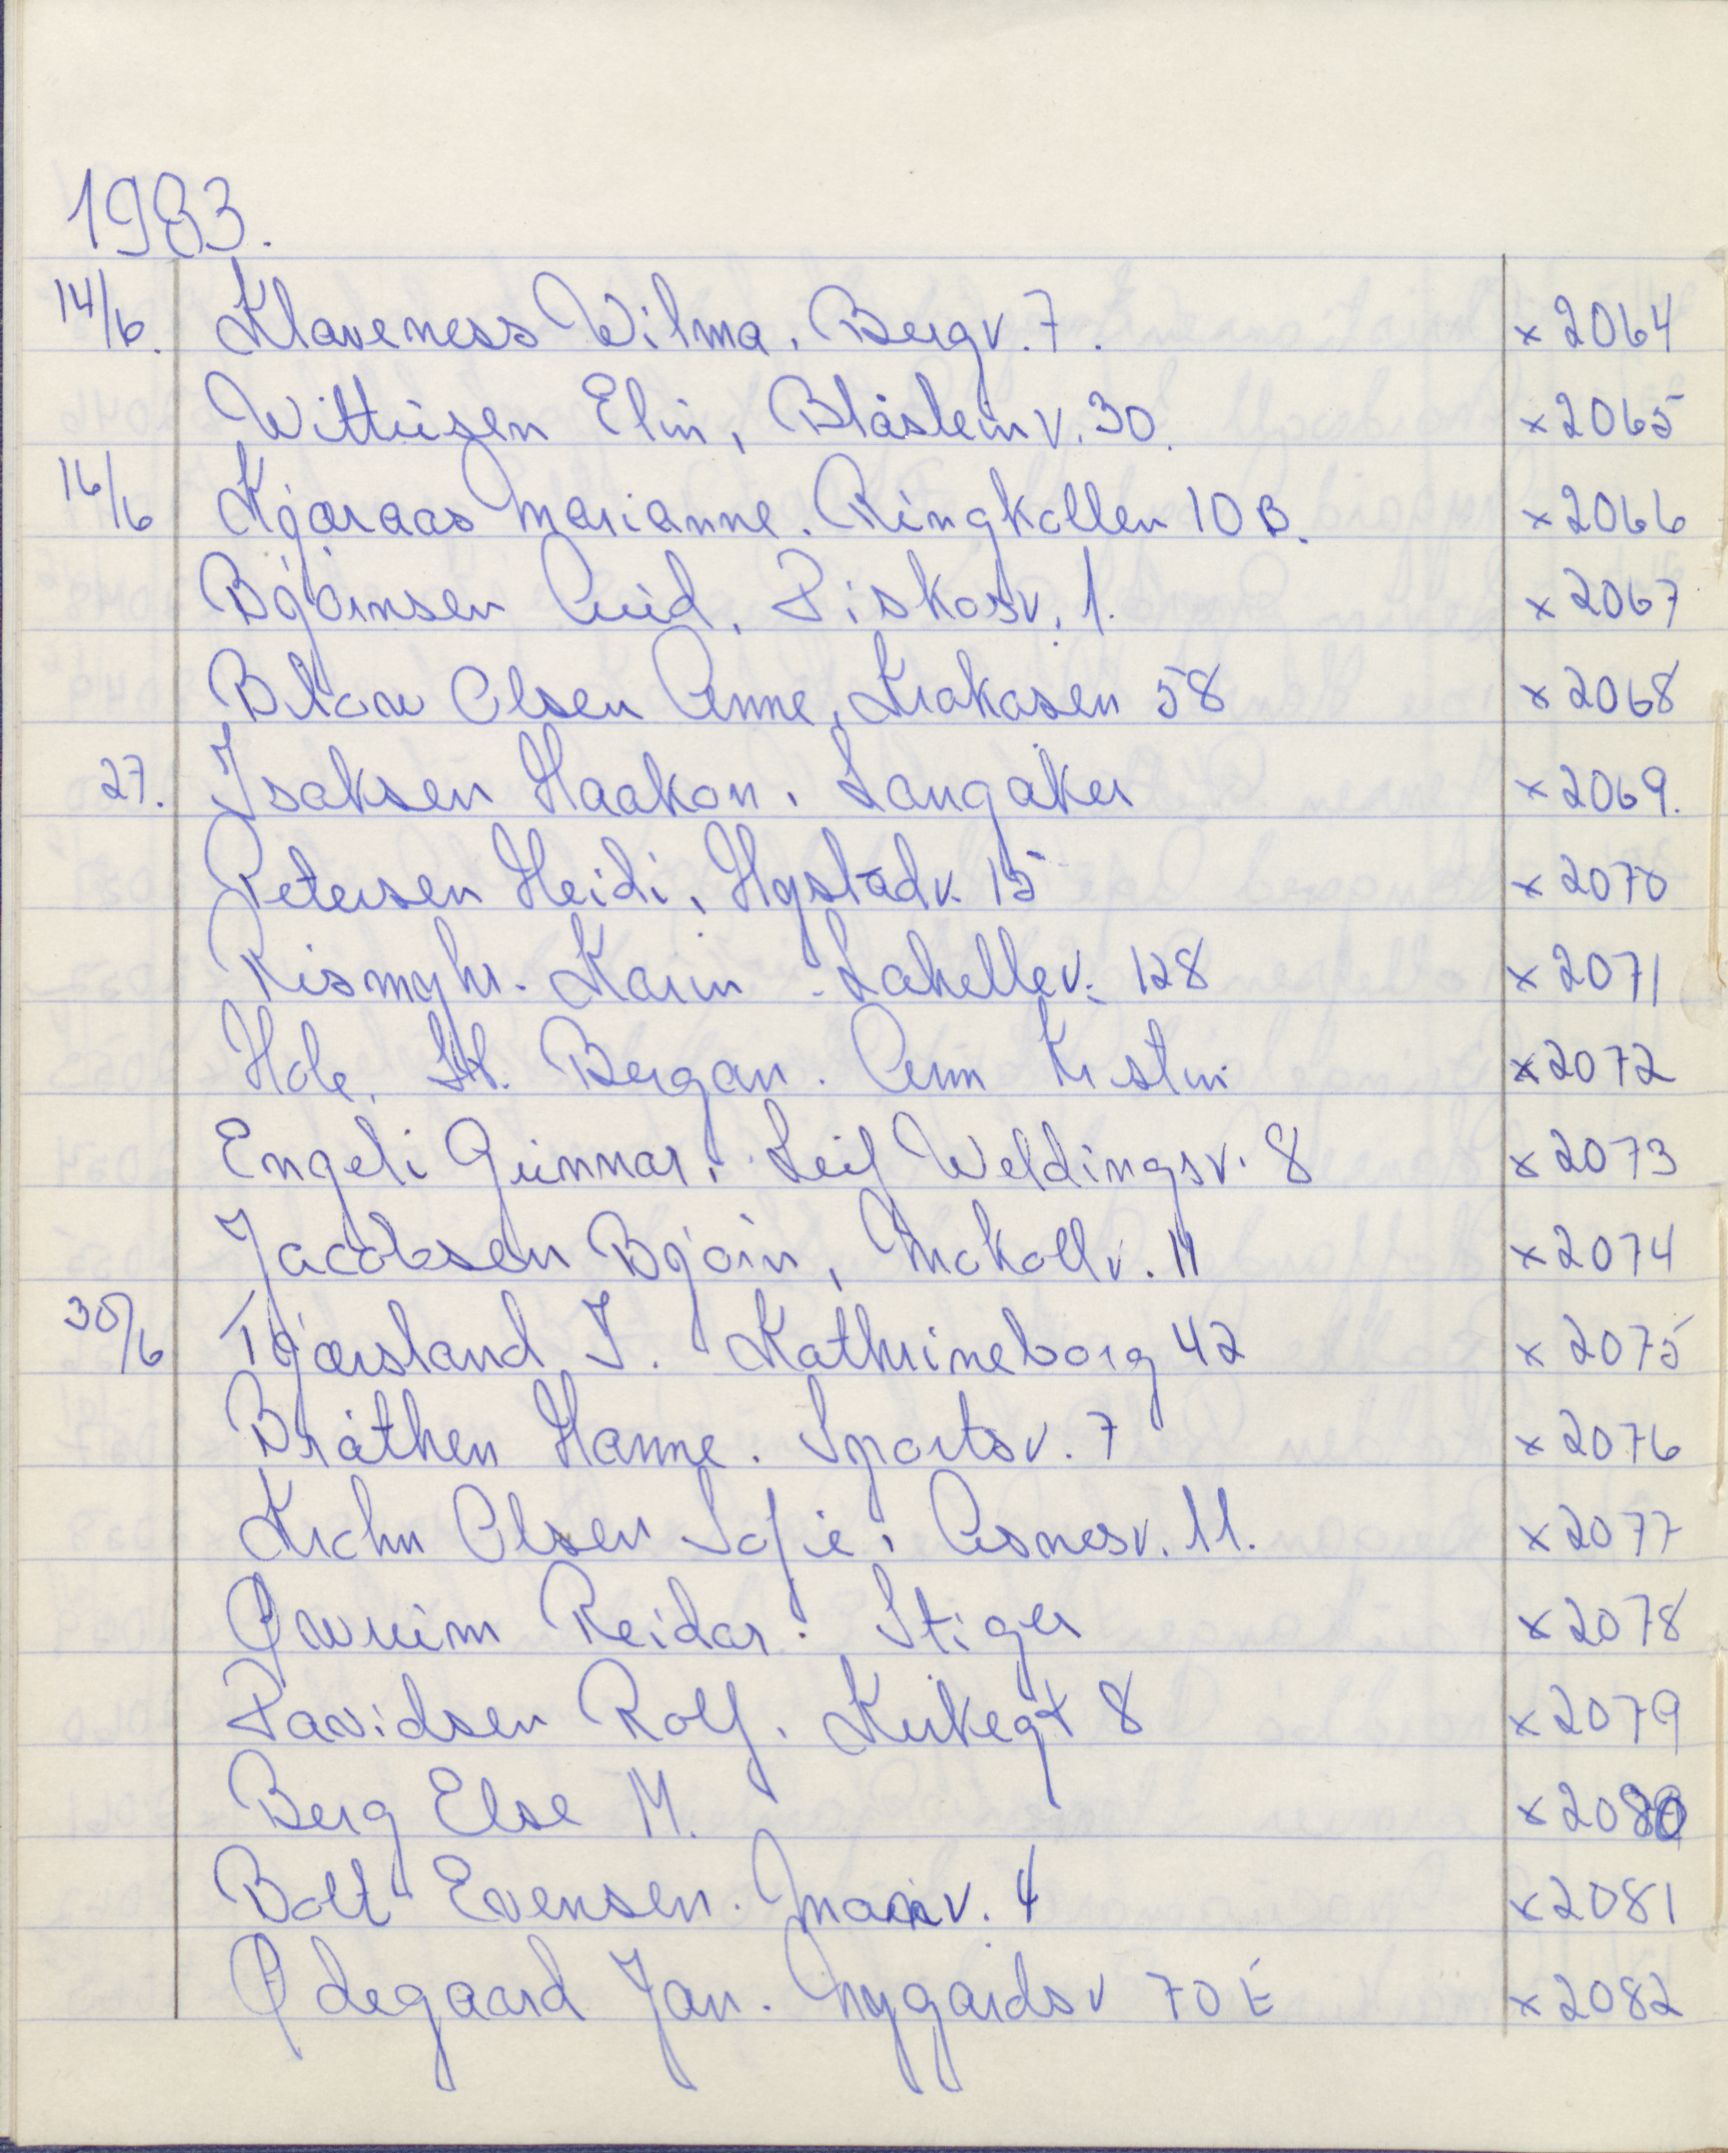 1983.
14/6. Klaveness Wilma. Bergv. 7. x 2064
Wittusen Elin, Blåsteinv. 30. x 2065
16/6 Kjøraas Marianne. Ringkollen 10 B. x 2066
Bjørnsen Anid. Fiskosv. 1. x 2067
Olsen Anne, Krakasen 58 x 2068
27. Isaksen Haakon. Langåker x 2069.
Petersen Heidi, Hystadv. 15 x 2070
Rismyhr. Karin. Lahellev. 128 x 2071
Hole, St. Bergan. Ann Kristin x 2072
Engeli Gunnar. Leif Weldingsv. 8 x 2073
Jacobsen Bjørn, Mokollv. 11 x 2074
30/6 Tjærsland I. Kathrineborg 42 x 2075
Bråthen Hanne. Sportsv. 7 x 2076
Krohn Olsen Sofie. Asnesv. 11. x 2077
Reidar. Stiger x 2078
Davidsen Rolf. Kirkegt 8 x 2079
Berg Else M. x 2080
Bott Evensen. v. 4 x 2081
Ødegaard Jan. Nygårdsv 70 E x 2082